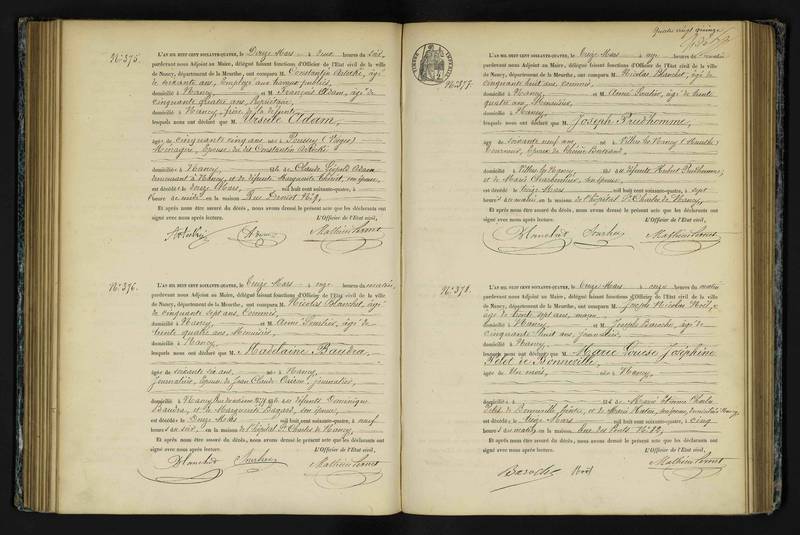 N.º 375.
L'AN MIL HUIT CENT SOIXANTE-QUATRE, le Douze Mars à deux heures du soir
pardevant nous Adjoint au Maire, délégué faisant fonctions d'Officier de l'Etat civil de la ville
de Nancy, département de la Meurthe, ont comparu M. Constantin âgé
de soixante ans, Employé aux travaux publics,
domicilié à Nancy et M. François Adam, âgé de
cinquante quatre ans,
domicilié à Nancy, frère de la défunte
lesquels nous ont déclaré que M. Ursule Adam,
âgée de cinquante cinq ans née à Poussay (Vosges)
Ménagère, Epouse du dit Constantin
domiciliée à Nancy, fille de Claude Léopold Adam
demeurant à Nancy, et de défunte Marguerite son épouse,
est décédée le douze Mars, mil huit cent soixante-quatre, à
heure de midi en la maison Rue Drouot N.º 9,
Et après nous être assuré du décès, nous avons dressé le présent acte que les déclarants ont
signé avec nous après lecture. L'Officier de l'Etat civil,
Adam Mathieu
N.º 376.
L'AN MIL HUIT CENT SOIXANTE-QUATRE, le Onze Mars à onze heures du matin,
pardevant nous Adjoint au Maire, délégué faisant fonctions d'Officier de l'Etat civil de la ville
de Nancy, département de la Meurthe, ont comparu M. Nicolas Blanchet, âgé
de cinquante sept ans, Commis,
domicilié à Nancy et M. Aimé âgé de
trente quatre ans, Menuisier,
domicilié à Nancy
lesquels nous ont déclaré que M. Madelaine Baudra,
âgée de soixante six ans, née à Nancy,
Journalière, Epouse de Jean Claude journalier,
domiciliée à Nancy fille des défunts Dominique
Baudra, et de Marguerite Bagard, son épouse,
est décédée le Onze Mars mil huit cent soixante-quatre, à neuf
heures du soir, en la maison de l'hôpital St. Charles de Nancy,
Et après nous être assuré du décès, nous avons dressé le présent acte que les déclarants ont
signé avec nous après lecture. L'Officier de l'Etat civil,
Blanchet Mathieu
Quatre vingt quinze
TIMBRE IMPERIAL
N.º 377.
L'AN MIL HUIT CENT SOIXANTE-QUATRE, le Onze Mars à onze heures du matin
pardevant nous Adjoint au Maire, délégué faisant fonctions d'Officier de l'Etat civil de la ville
de Nancy, département de la Meurthe, ont comparu M. Nicolas Blanchet, âgé de
cinquante huit ans, commis,
domicilié à Nancy et M. Aimé âgé de trente
quatre ans, Menuisier,
domicilié à Nancy,
lesquels nous ont déclaré que M. Joseph Prudhomme,
âgé de soixante neuf ans né à Villers les Nancy (Meurthe)
Epoux de Bertrand
domicilié à Villers les Nancy fils des défunts Hubert Prudhomme,
et de Marie Charbonnier, son épouse,
est décédé le onze Mars mil huit cent soixante-quatre, à sept
heures du matin en la maison de l'hôpital St. Charles de Nancy,
Et après nous être assuré du décès, nous avons dressé le présent acte que les déclarants ont
signé avec nous après lecture. L'Officier de l'Etat civil,
Blanchet Mathieu
N.º 378.
L'AN MIL HUIT CENT SOIXANTE-QUATRE, le Onze Mars à onze heures du matin
pardevant nous Adjoint au Maire, délégué faisant fonctions d'Officier de l'Etat civil de la ville
de Nancy, département de la Meurthe, ont comparu M. Joseph Nicolas Noël,
âgé de trente sept ans, maçon
domicilié à Nancy et M. Joseph Baroche, âgé de
cinquante huit ans, journalier,
domicilié à Nancy,
lesquels nous ont déclaré que M. Marie Louise Joséphine
Petet de Bonneville,
âgée de Un mois, née à Nancy,
domiciliée à fille de Marie Etienne
Petet de Bonneville, et de Marie son épouse, domiciliés à Nancy
est décédée le Onze Mars mil huit cent soixante-quatre, à cinq
heures du matin en la maison Rue des Ponts N.º 82,
Et après nous être assuré du décès, nous avons dressé le présent acte que les déclarants ont
signé avec nous après lecture. L'Officier de l'Etat civil,
Baroche Noël Mathieu